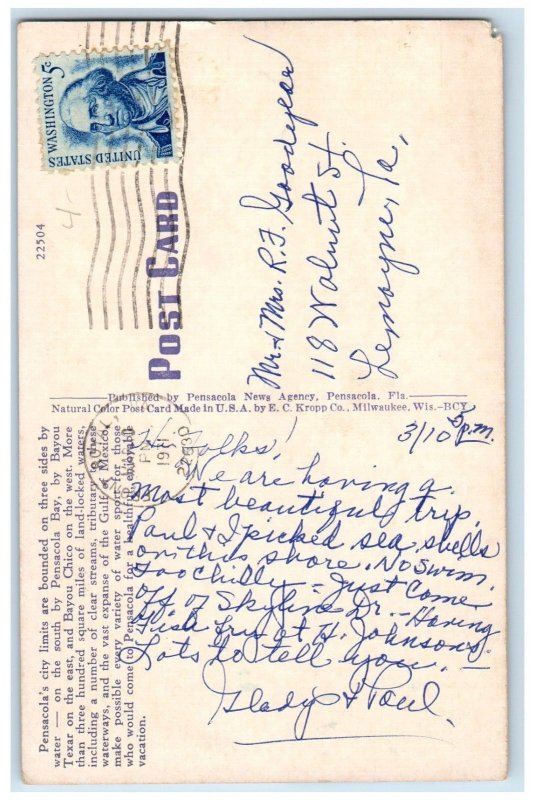 UNITED STATES
WASHINGTON 5c
22504
4-
POST CARD
Mr. & Mrs. R. F. Goodyear
118 Walnut St.
Lemoyne, Pa,
Published by Pensacola News Agency, Pensacola, Fla.
Natural Color Post Card Made in U.S.A. by E. C. Kropp Co., Milwaukee, Wis.-BCY
Pensacola's city limits are bounded on three sides by
water — on the south by Pensacola Bay, by Bayou
Texar on the east, and Bayou Chico on the west. More
than three hundred square miles of land-locked waters,
including a number of clear streams, tributary to these
waterways, and the vast expanse of the Gulf of Mexico,
make possible every variety of water sport for those
who would come to Pensacola for a healthful, enjoyable
vacation.
PM
22630
3/10 5 p.m.
Hi Folks!
We are having a
most beautiful trip.
Paul & I picked sea shells
on this shore. No swim.
Too chilly - Just come
off of Skyline Dr. - Having
at H. Johnson's.
Lots to tell you. -
Gladys & Paul.